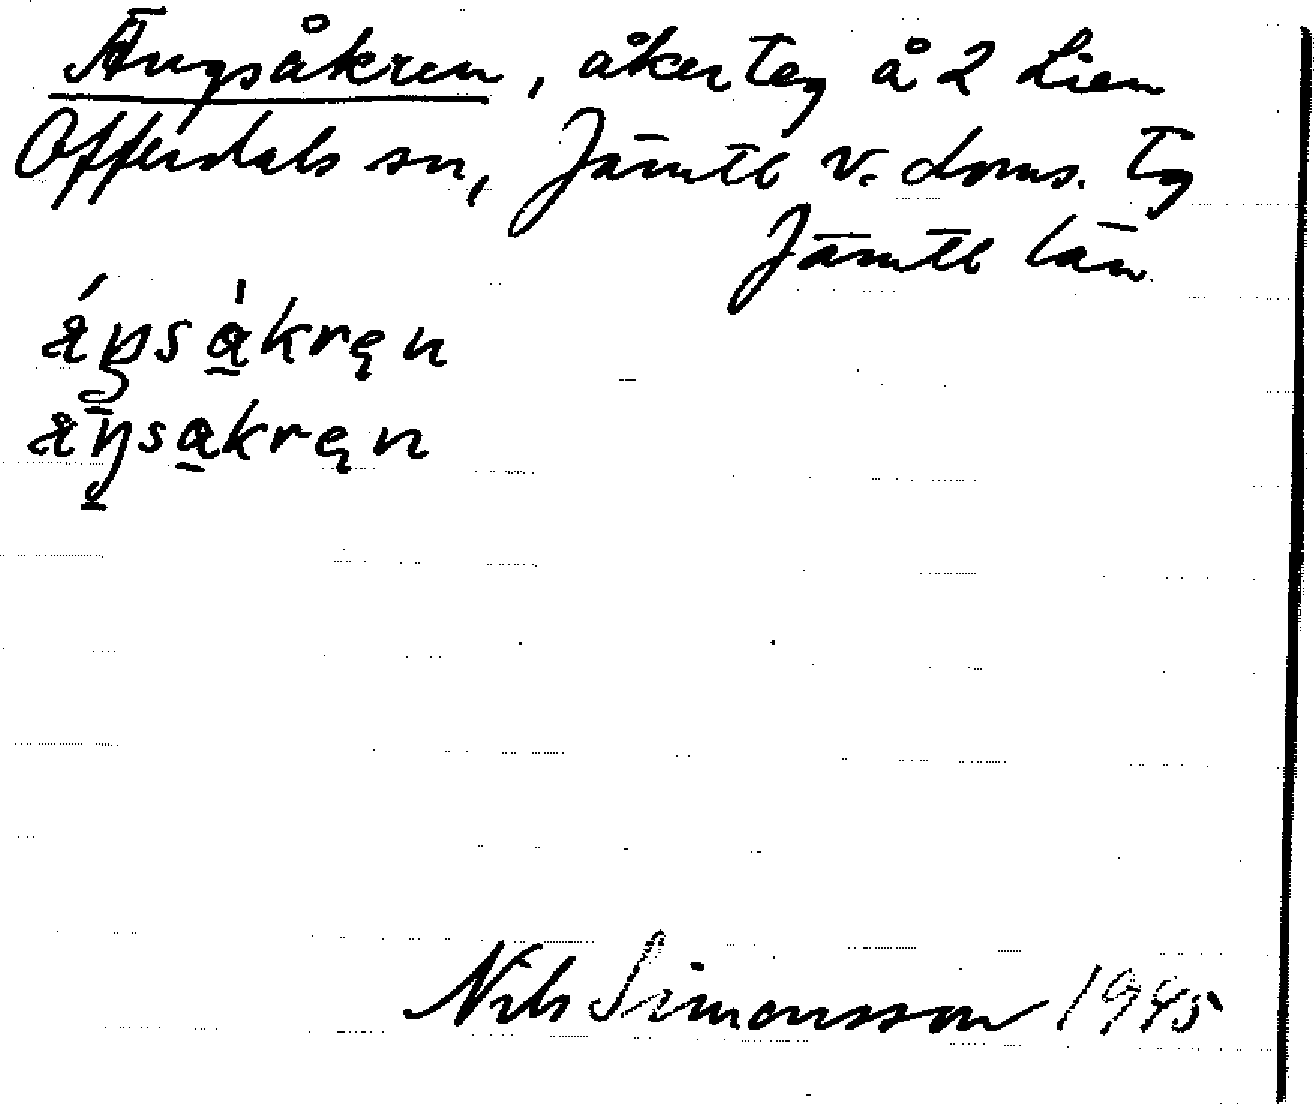 Ängsåkren, åkerteg å 2 Lien
Offerdals sn, Jämtl v. doms. tg
Jämtl län
áŋsàkręn
äŋsakręn
Nils Simonsson 1945